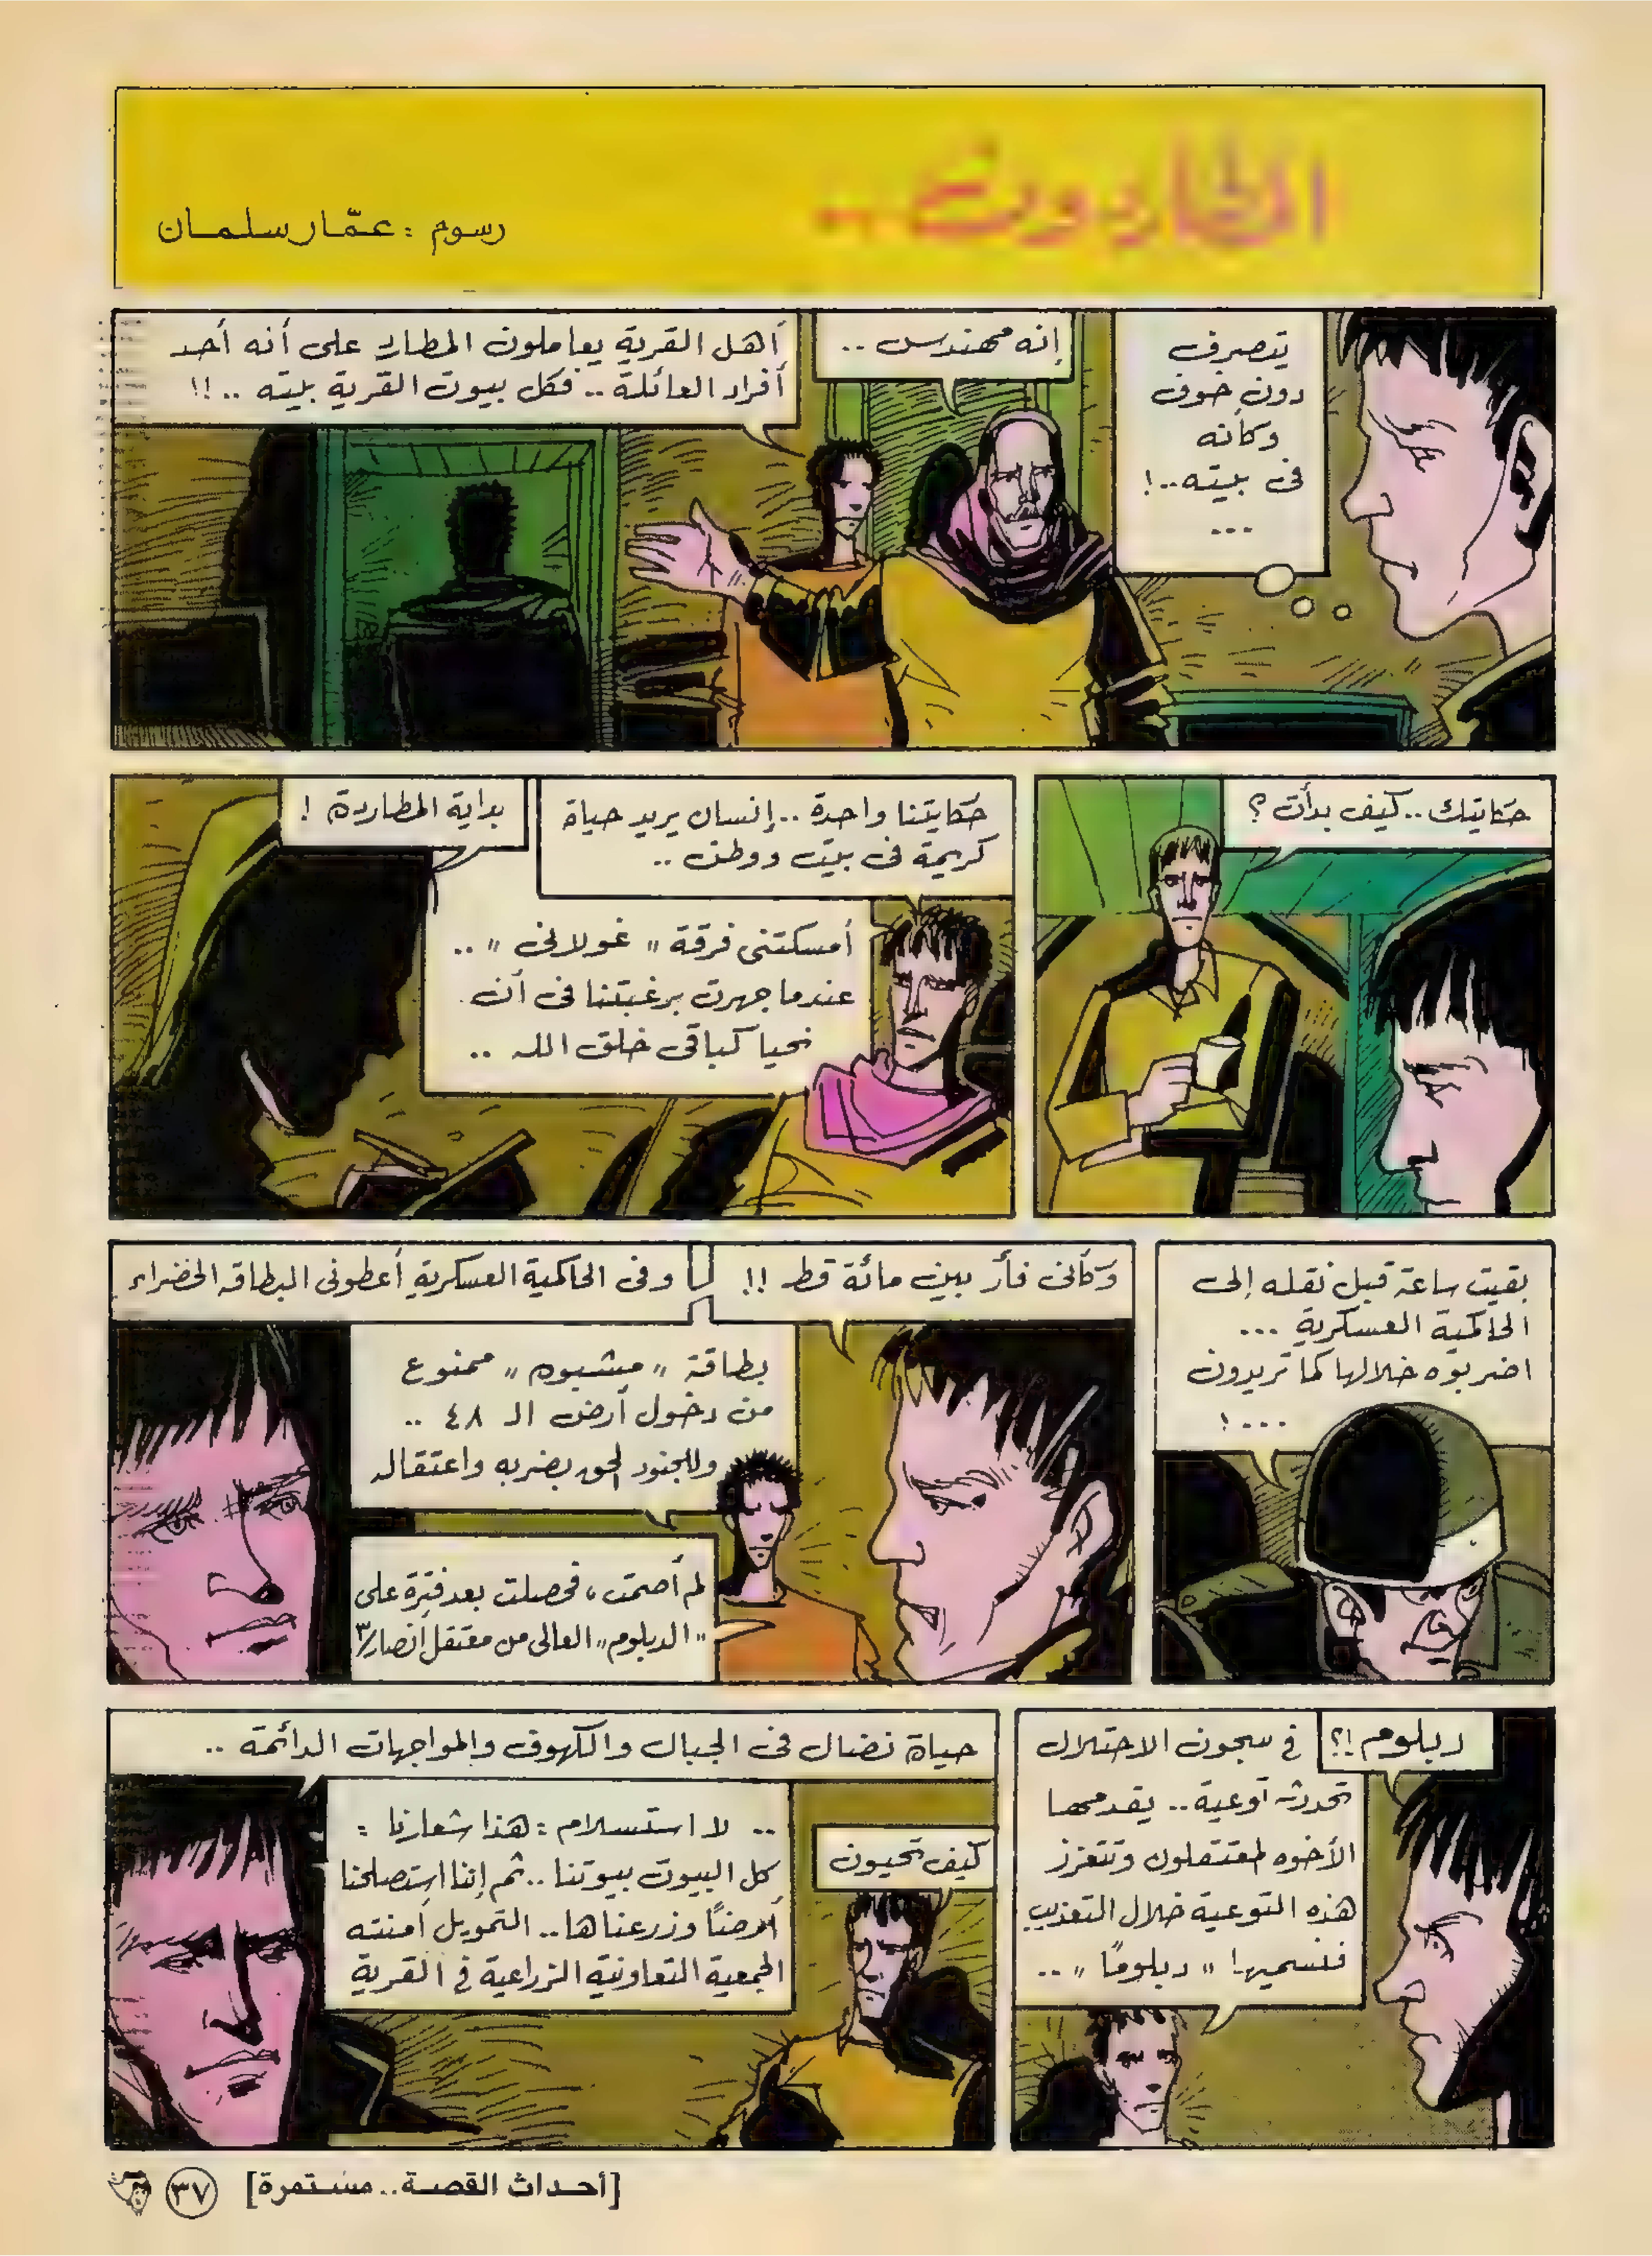 المطاردون ..
رسوم : عمّار سلمان
يتصرف
دون خوف
وكأنه
فى بيته..!
...
إنه مهندس ..
أهل القرية يعاملون المطارد على أنه أحد
أفراد العائلة .. فكل بيوت القرية بيته ..!!
حكايتك .. كيف بدأت ؟
حكايتنا واحدة .. إنسان يريد حياة
كريمة فى بيت ووطن ..
بداية المطاردة !
أمسكتنى فرقة " غولانى " ..
عندما جهرت برغبتنا فى أن
نحيا كباقى خلق الله ..
بقيت ساعة قبل نقله إلى
الحاكمية العسكرية ...
اضربوه خلالها كما تريدون
...!
وكأنى فأر بين مائة قط !!
وفى الحاكمية العسكرية أعطونى البطاقه الخضراء
بطاقة " مشبوه " ممنوع
من دخول أرض الـ ٤٨ ..
وللجنود الحق بضربه واعتقاله
لم أصمت ، فحصلت بعد فترة على
"الدبلوم" العالى من معتقل أنصار٣
دبلوم !؟
فى سجون الاحتلال
تحدث توعية .. يقدمها
الأخوه المعتقلون وتتعزز
هذه التوعية خلال التعذيب
فنسميها " دبلومًا " ..
كيف تحيون
حياة نضال فى الجبال والكهوف والمواجهات الدائمة ..
.. لا استسلام : هذا شعارنا :
كل البيوت بيوتنا .. ثم إننا استصلحنا
أرضنًا وزرعناها .. التمويل أمنته
الجمعية التعاونية الزراعية فى القرية
[أحداث القصة .. مستمرة]
٣٧